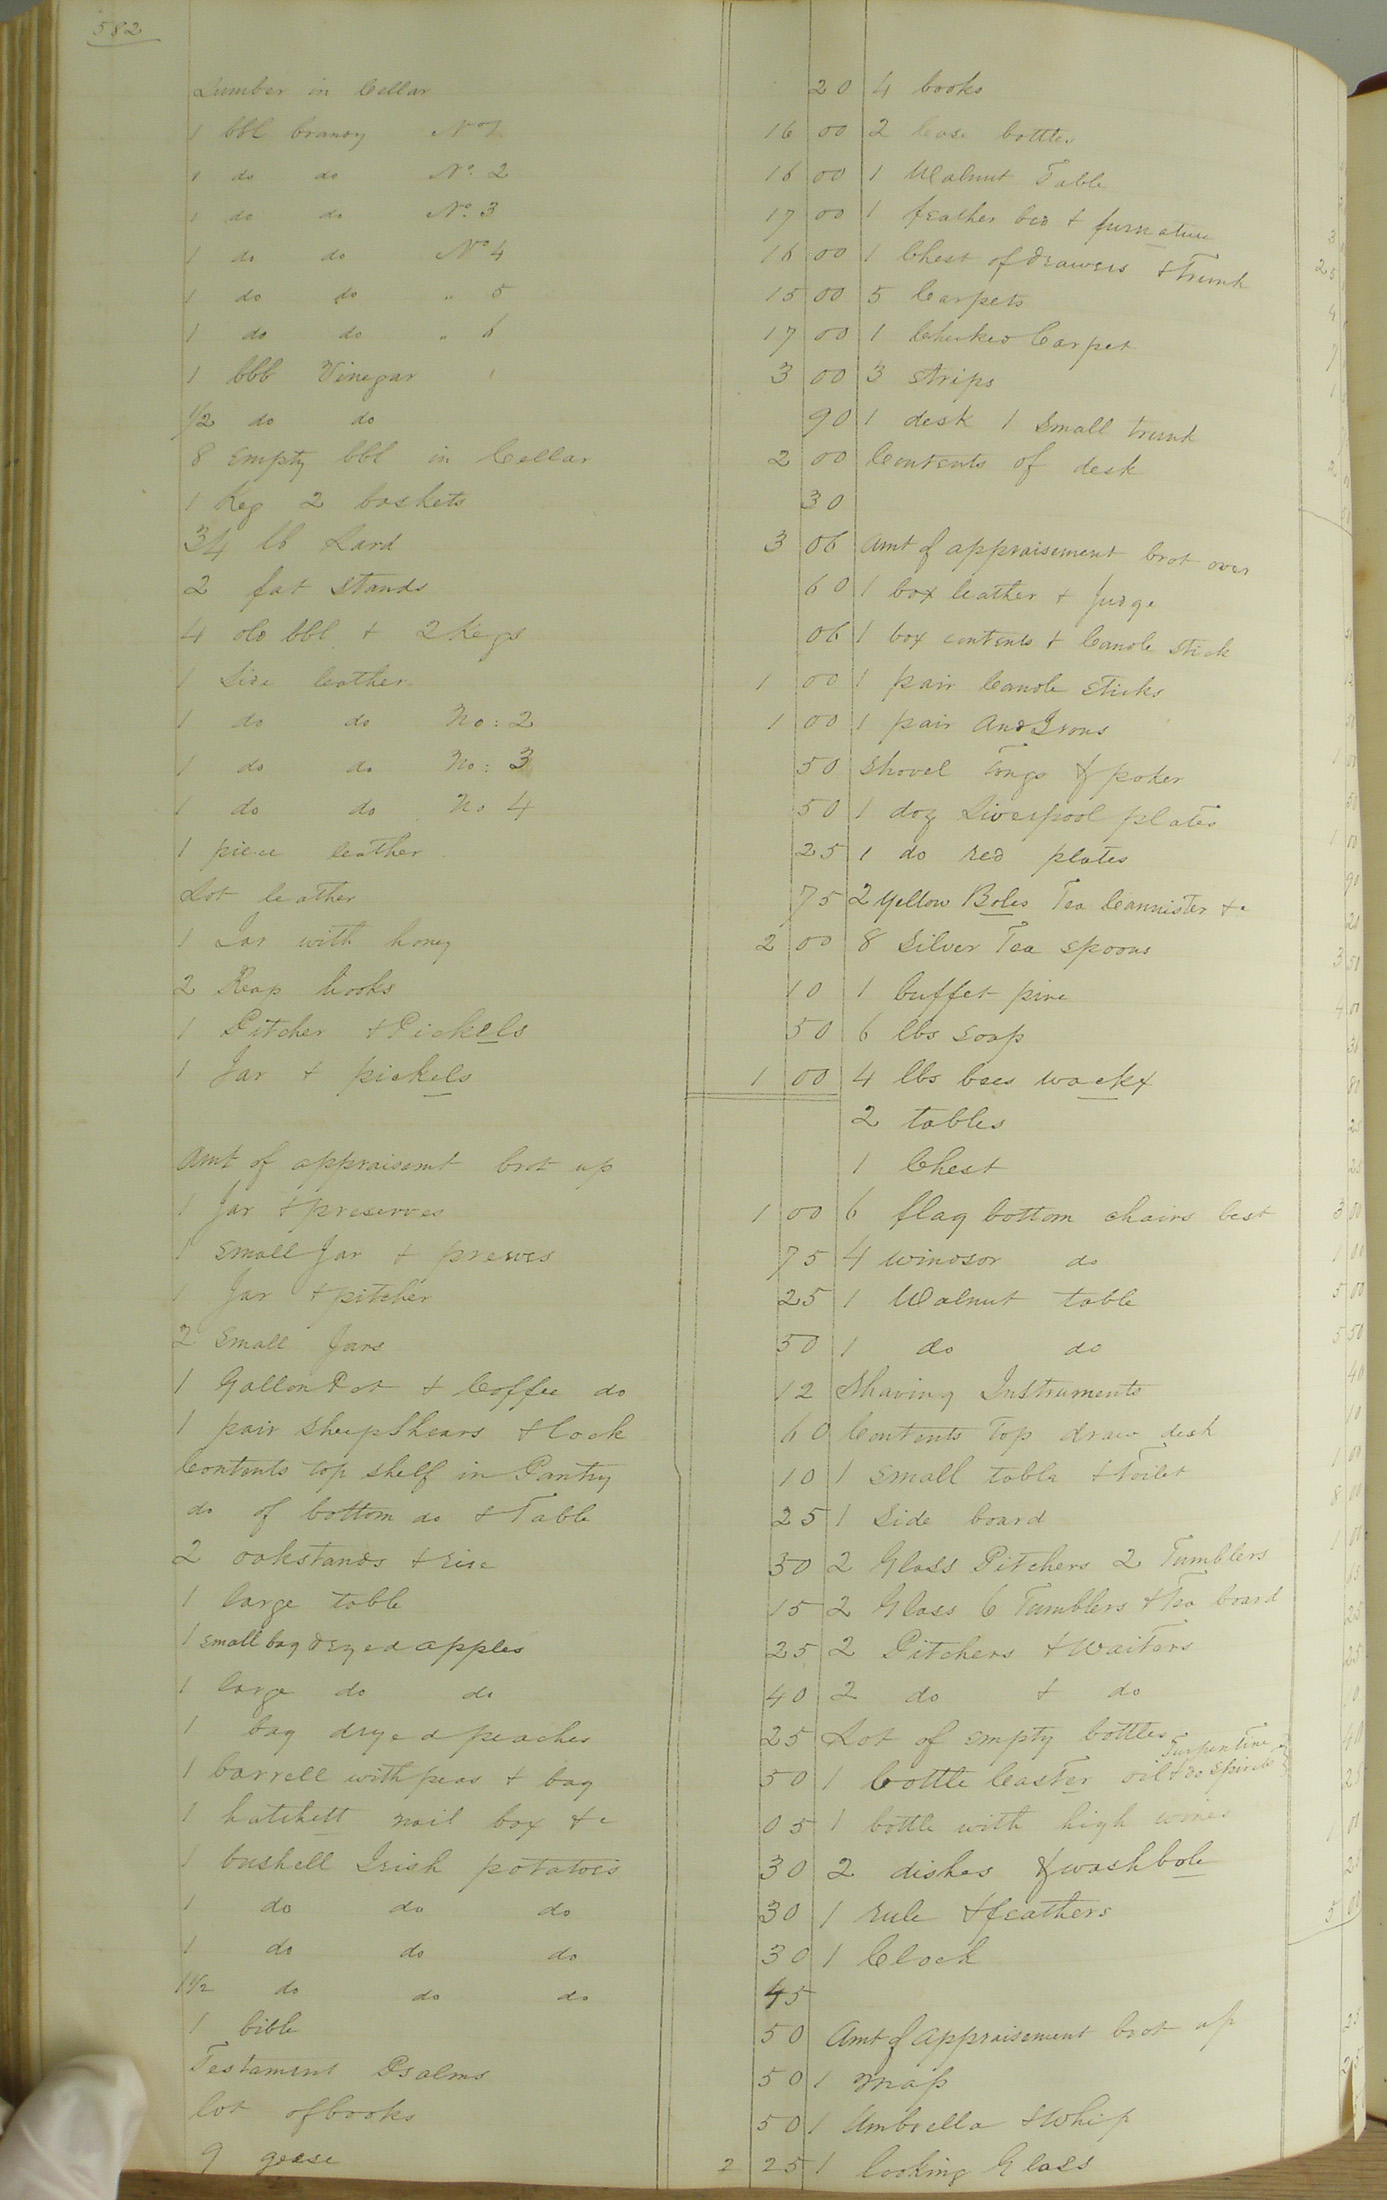 582
Lumber in Cellar 20
1 bbl brandy No 1 16 00
1 do do No. 2 16 00
1 do do No. 3 17 00
1 do do No 4 16 00
1 do do " 5 15 00
1 do do " 6 17 00
1 bbl Vinegar 3 00
1/2 do do 90
8 Empty bbl in Cellar 2 00
1 Keg 2 baskets 30
34 lb Lard 3 06
2 fat stands 60
4 old bbl + 2 Kegs 06
1 Side leather 1 00
1 do do No: 2 1 00
1 do do No: 3 50
1 do do No 4 50
1 piece leather 25
Lot leather 75
1 Jar with honey 2 00
2 Reap hooks 10
1 Pitcher + Pickels 50
1 Jar + pickels 1 00
Amt of appraisemt brot up
1 Jar + preserves 1 00
1 small Jar + preserves 75
1 Jar + pitcher 25
2 Small Jars 50
1 Gallon Pot + Coffee do 12
1 pair sheep Shears + lock 60
Contents top shelf in Pantry 10
do of bottom do + Table 25
2 oakstands + rice 30
1 large table 15
1 small bag dryed apples 25
1 large do do 40
1 bag dryed peaches 25
1 barrell with peas + bag 50
1 hatchett nail box &c 05
1 bushell Irish potatoes 30
1 do do do 30
1 do do do 30
1 1/2 do do do 45
1 bible 50
Testament Psalms 50
lot of books 50
9 geese 2 25
4 books
2 Case bottles
1 Walnut Table
1 feather bed + furnature 3
1 Chest of drawers + Trunk 25
5 Carpets 4
1 Checked Carpet 7
3 strips 1
1 desk 1 small trunk
Contents of desk 2
Amt of appraisement brot over
1 box leather +
1 box contents + Candle Stick
1 pair Candle Sticks
1 pair And Irons
Shovel Tongs & poker 1 00
1 doz Liverpool plates 50
1 do red plates 1 00
2 Yellow Boles Tea Cannister &c 90
8 Silver Tea spoons 3 50
1 buffet pine 4 00
6 lbs soap 30
4 lbs bees wackx 80
2 tables 25
1 Chest 25
6 flag bottom chairs best 3 00
4 windsor do 1 00
1 Walnut table 5 00
1 do do 5 50
Shaving Instruments 40
Contents Top draw desk 10
1 small table + Toilet 1 00
1 Side board 8 00
2 Glass Pitchers 2 Tumblers 1 00
2 Glass 6 Tumblers + Tea board 15
2 Pitchers + Waiters 25
2 do + do
Lot of empty bottles 40
1 bottle Caster oil + do Spirits Turpentine 25
1 bottle with high wines 1 00
2 dishes & washbole 25
1 rule + feathers
1 Clock 5 00
Amt of appraisement brot up
1 map
1 Umbrella + Whip
1 looking Glass